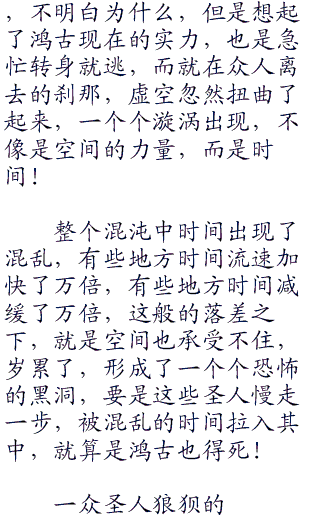 ，不明白为什么，但是想起
了鸿古现在的实力，也是急
忙转身就逃，而就在众人离
去的刹那，虚空忽然扭曲了
起来，一个个漩涡出现，不
像是空间的力量，而是时
间！
整个混沌中时间出现了
混乱，有些地方时间流速加
快了万倍，有些地方时间减
缓了万倍，这般的落差之
下，就是空间也承受不住，
岁累了，形成了一个个恐怖
的黑洞，要是这些圣人慢走
一步，被混乱的时间拉入其
中，就算是鸿古也得死！
一众圣人狼狈的